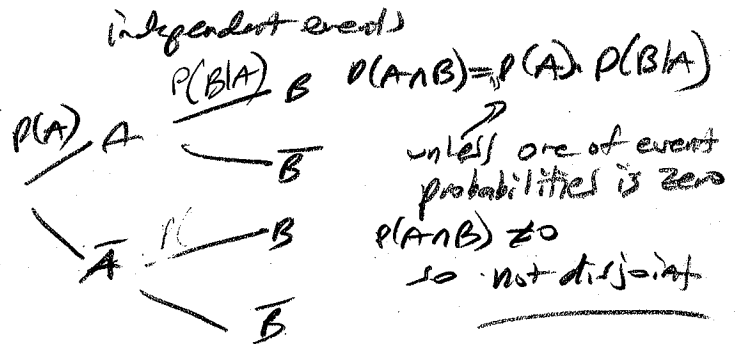 independent events
P(A) A P(B|A) B
B̅
A̅ P( B
B̅
P(A∩B) = P(A). P(B|A)
unless one of event
probabilities is zero
P(A∩B) ≠0
so not disjoint